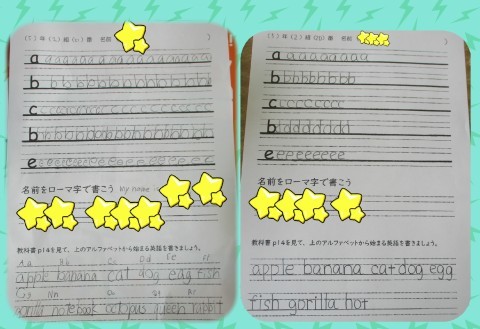 a a a a a a a a a a a a a
b b b b b b b b b b b b
c c c c c c c c c c c c
b b b b b b b b b b b b
e e e e e e e e e e e e
名前をローマ字で書こう My name
教科書p14を見て、上のアルファベットから始まる英語を書きましょう。
Aa Bb Cc Dd Ee Ff
apple banana cat dog egg fish
Gg Nn
gorilla notebook octopus queen rabbit
(1)年(2)組(20)番 名前 )
a a a a a a a a a
b b b b b b b b b
c c c c c c c c c
b d d d d d d d d
e e e e e e e e e
名前をローマ字で書こう
教科書p14を見て、上のアルファベットから始まる英語を書きましょう。
apple banana cat dog egg
fish gorilla hot